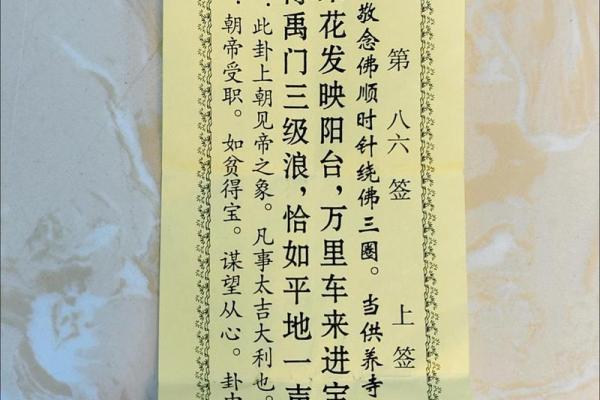 第八六签 上签
敬念佛顺时针绕佛三圈。当供养寺
花发映阳台，万里车来进宝
禹门三级浪，恰如平地一声
：此卦上朝见帝之象。凡事太吉大利也。
：朝帝受职。如贫得宝。谋望从心。卦中